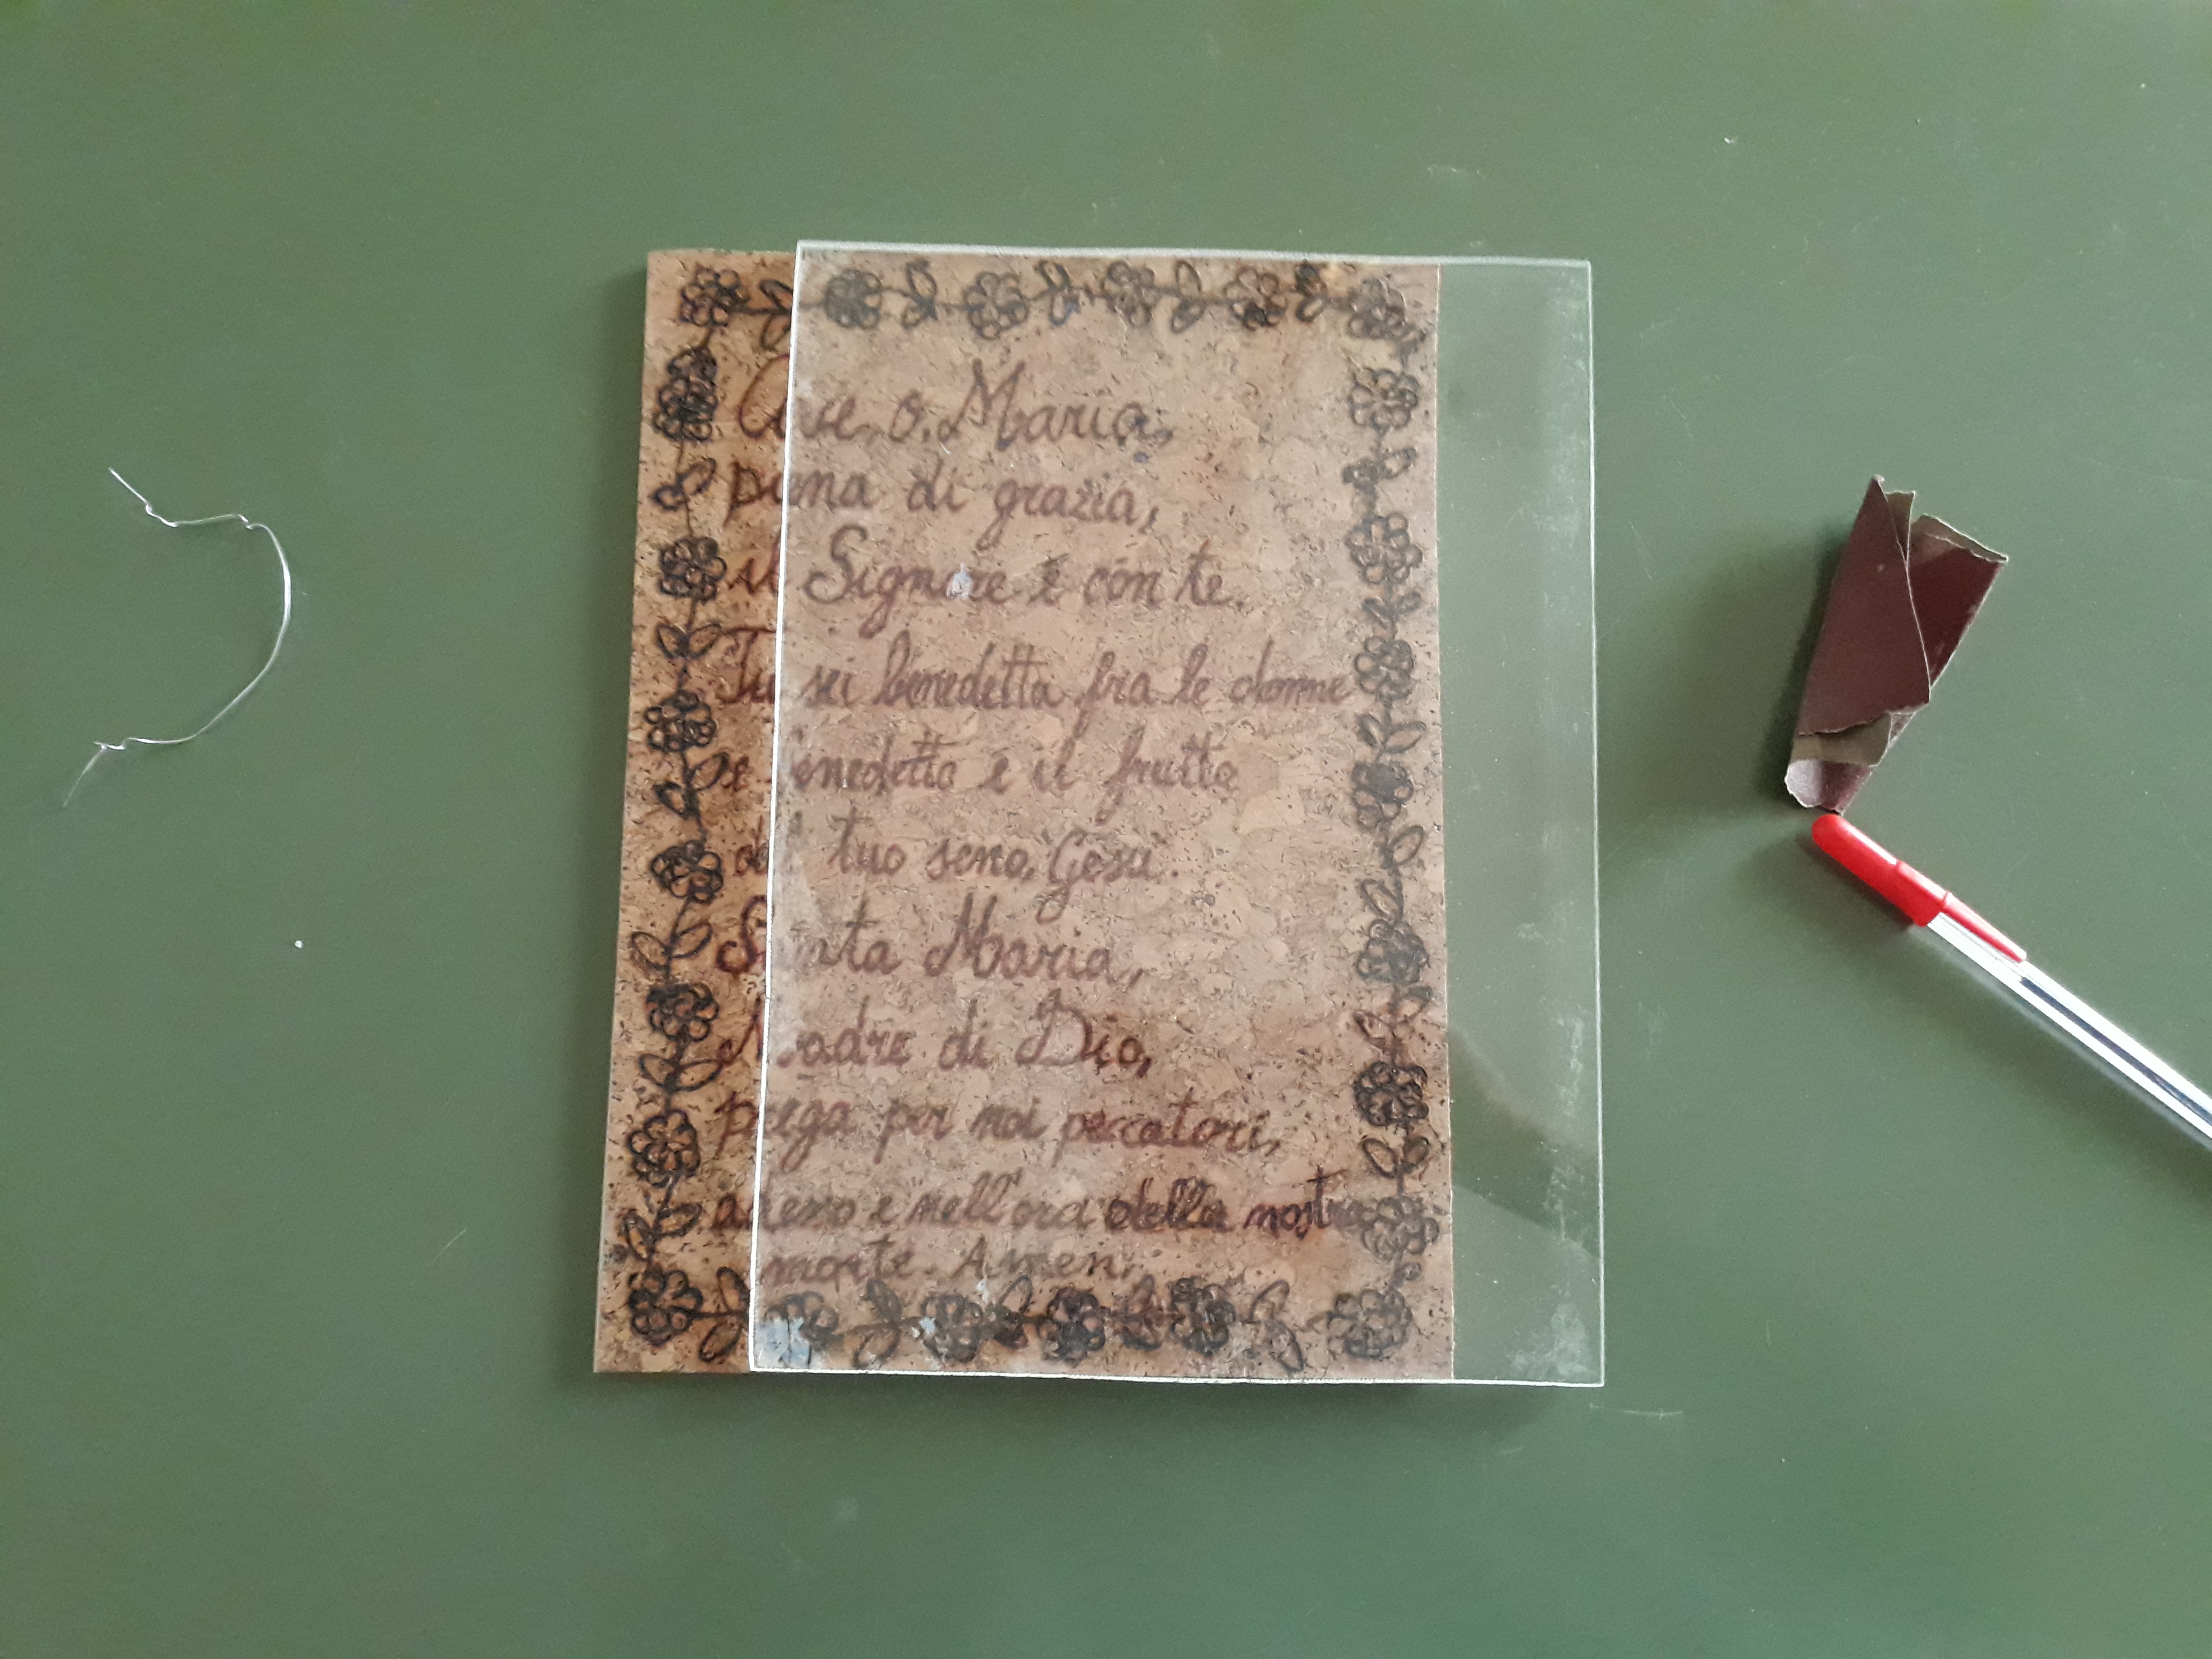 Ave, o, Maria,
piena di grazia,
il Signore è con te.
Tu sei benedetta fra le donne
e benedetto è il frutto
del tuo seno, Gesù.
Santa Maria,
Madre di Dio,
prega per noi peccatori,
adesso e nell'ora della nostra
morte. Amen.